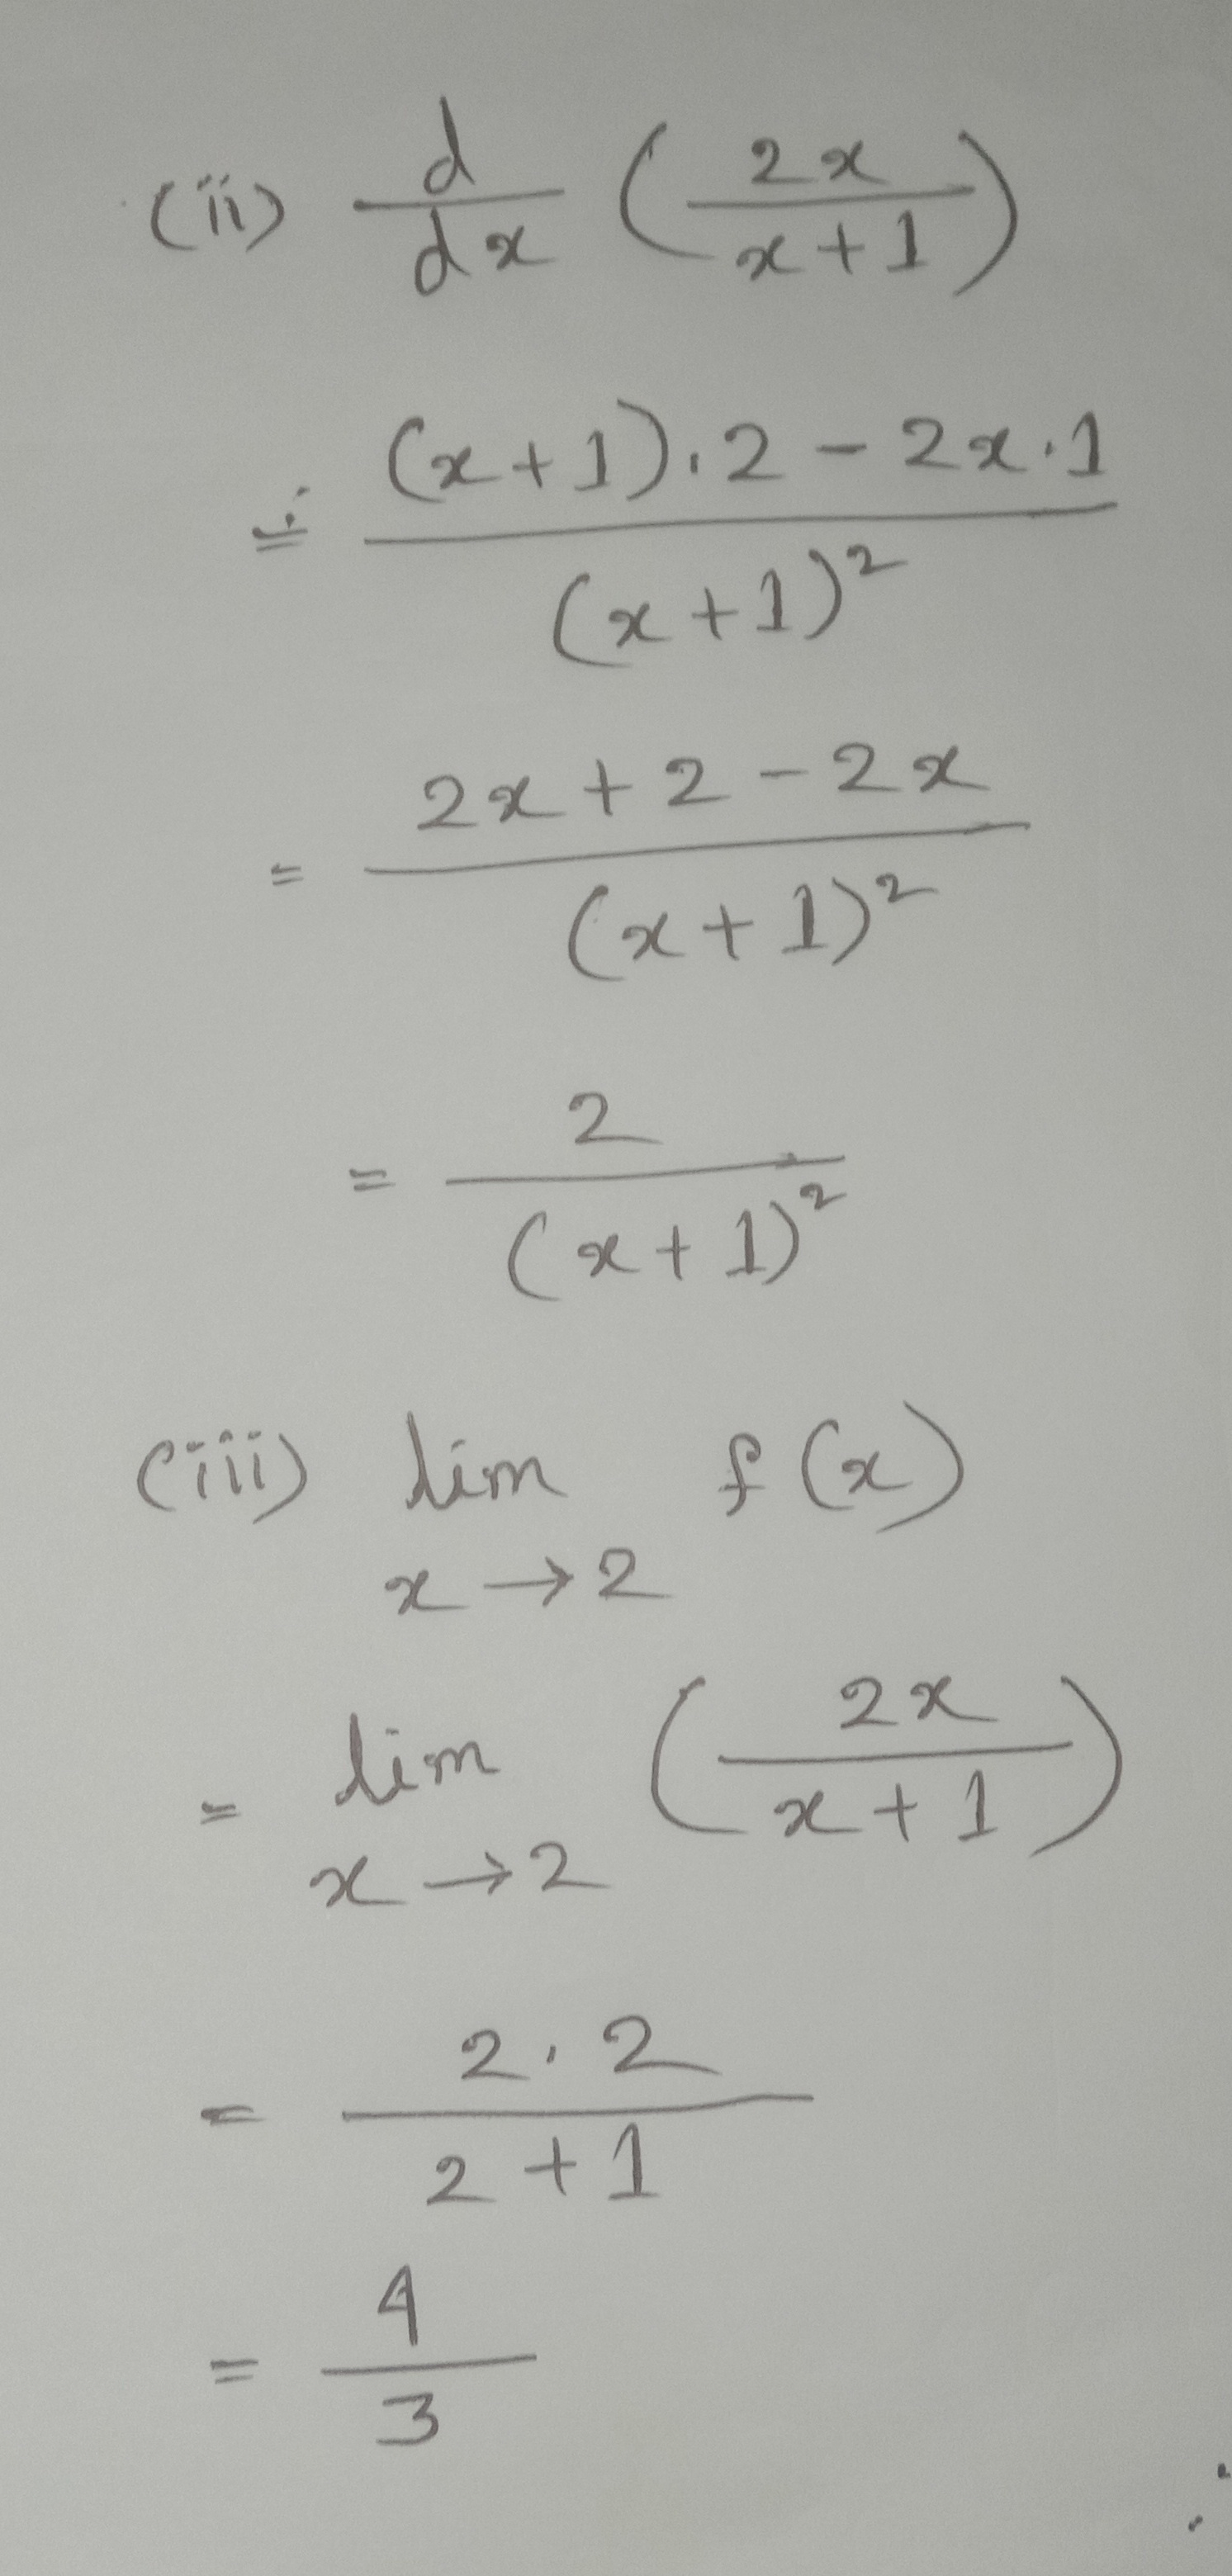 (ii) d/dx (2x/(x+1))
= ((x+1).2 - 2x.1)/(x+1)²
= (2x + 2 - 2x)/(x+1)²
= 2/(x+1)²
(iii) lim f(x)
x→2
= lim (2x/(x+1))
x→2
= (2.2)/(2+1)
= 4/3